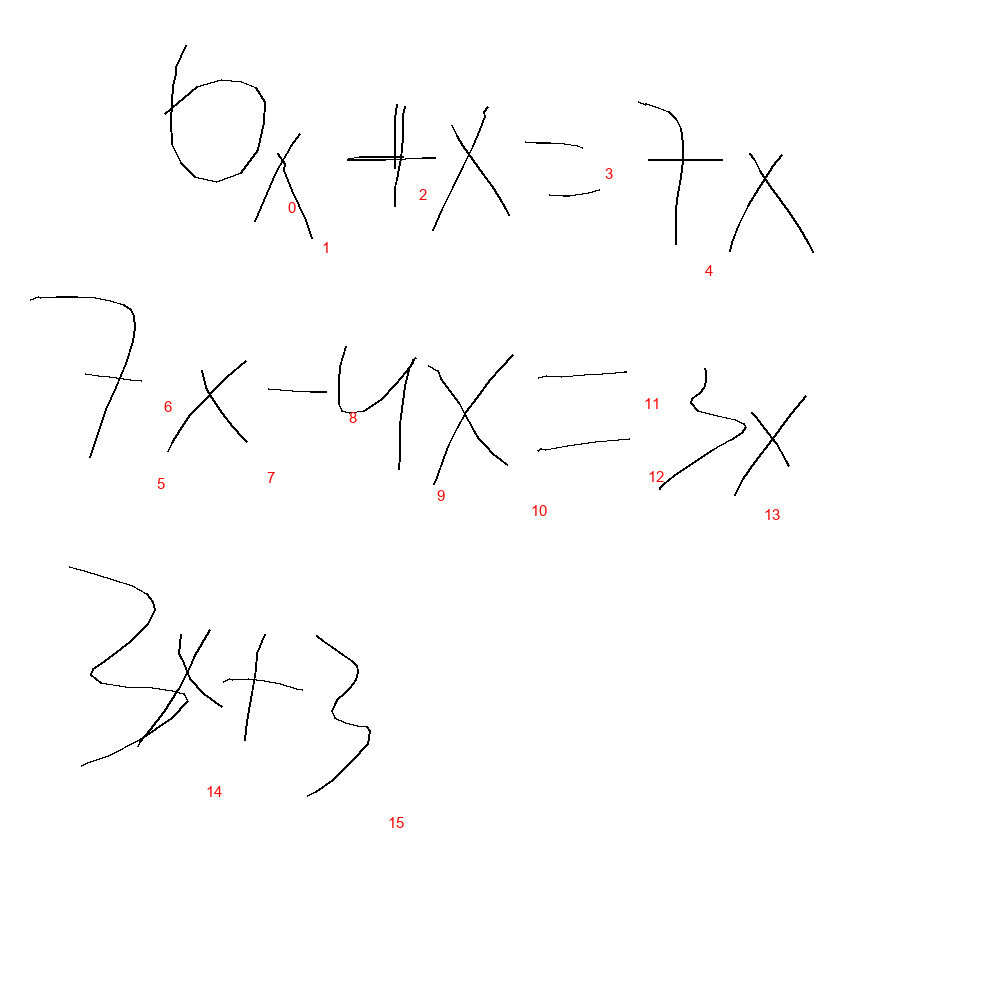 6x + x = 7x
0 1 2 3 4
7x - 4x = 3x
5 6 7 8 9 10 11 12 13
3x + 3
14 15